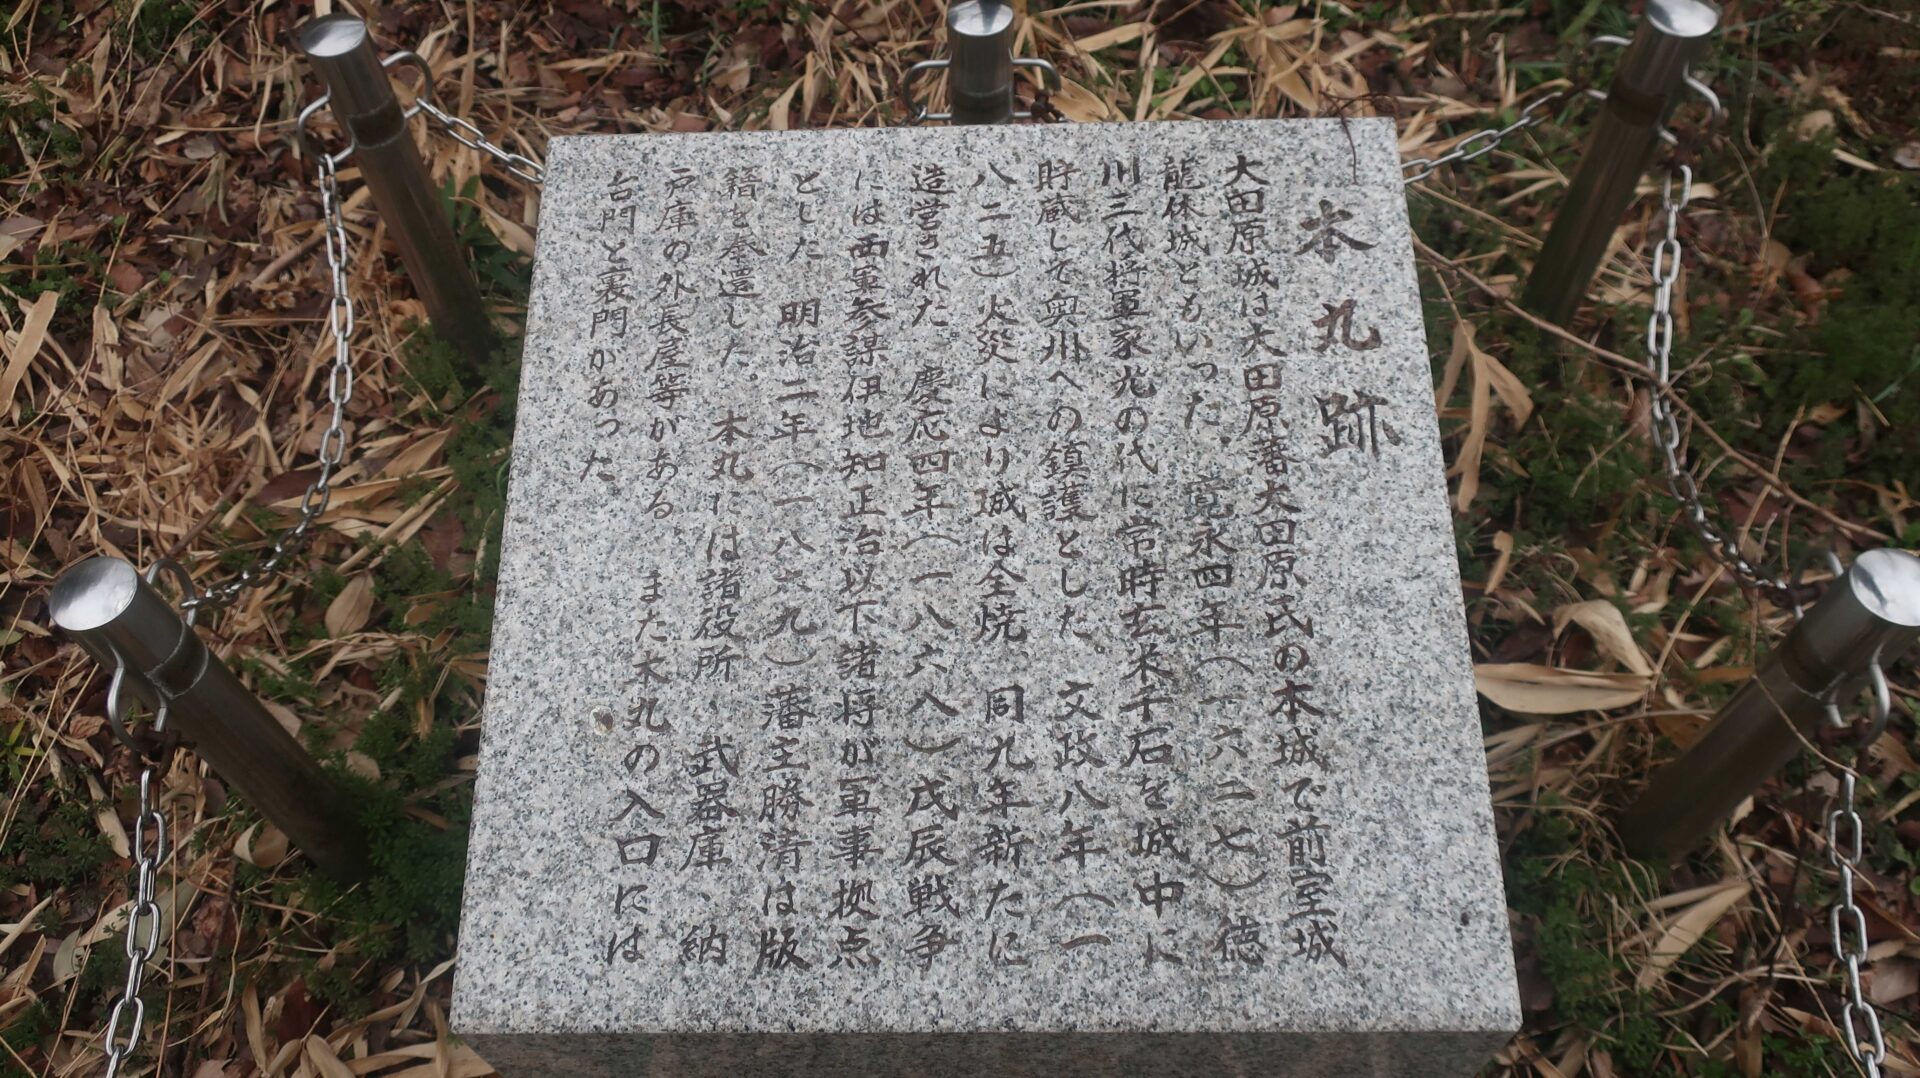 本丸跡
大田原城は大田原藩大田原氏の本城で前室城
龍体城ともいった。寛永四年(一六二七)徳
川三代将軍家光の代に常時玄米千石を城中に
貯蔵して奥州への鎮護とした。文政八年(一
八二五)火災により城は全焼、同九年新たに
造営された。慶応四年(一八六八)戊辰戦争
には西軍参謀伊地知正治以下諸将が軍事拠点
とした。明治二年(一八六九)藩主勝清は版
籍を奉還した。本丸には諸役所、武器庫、納
戸庫の外長屋等がある。また本丸の入口には
台門と裏門があった